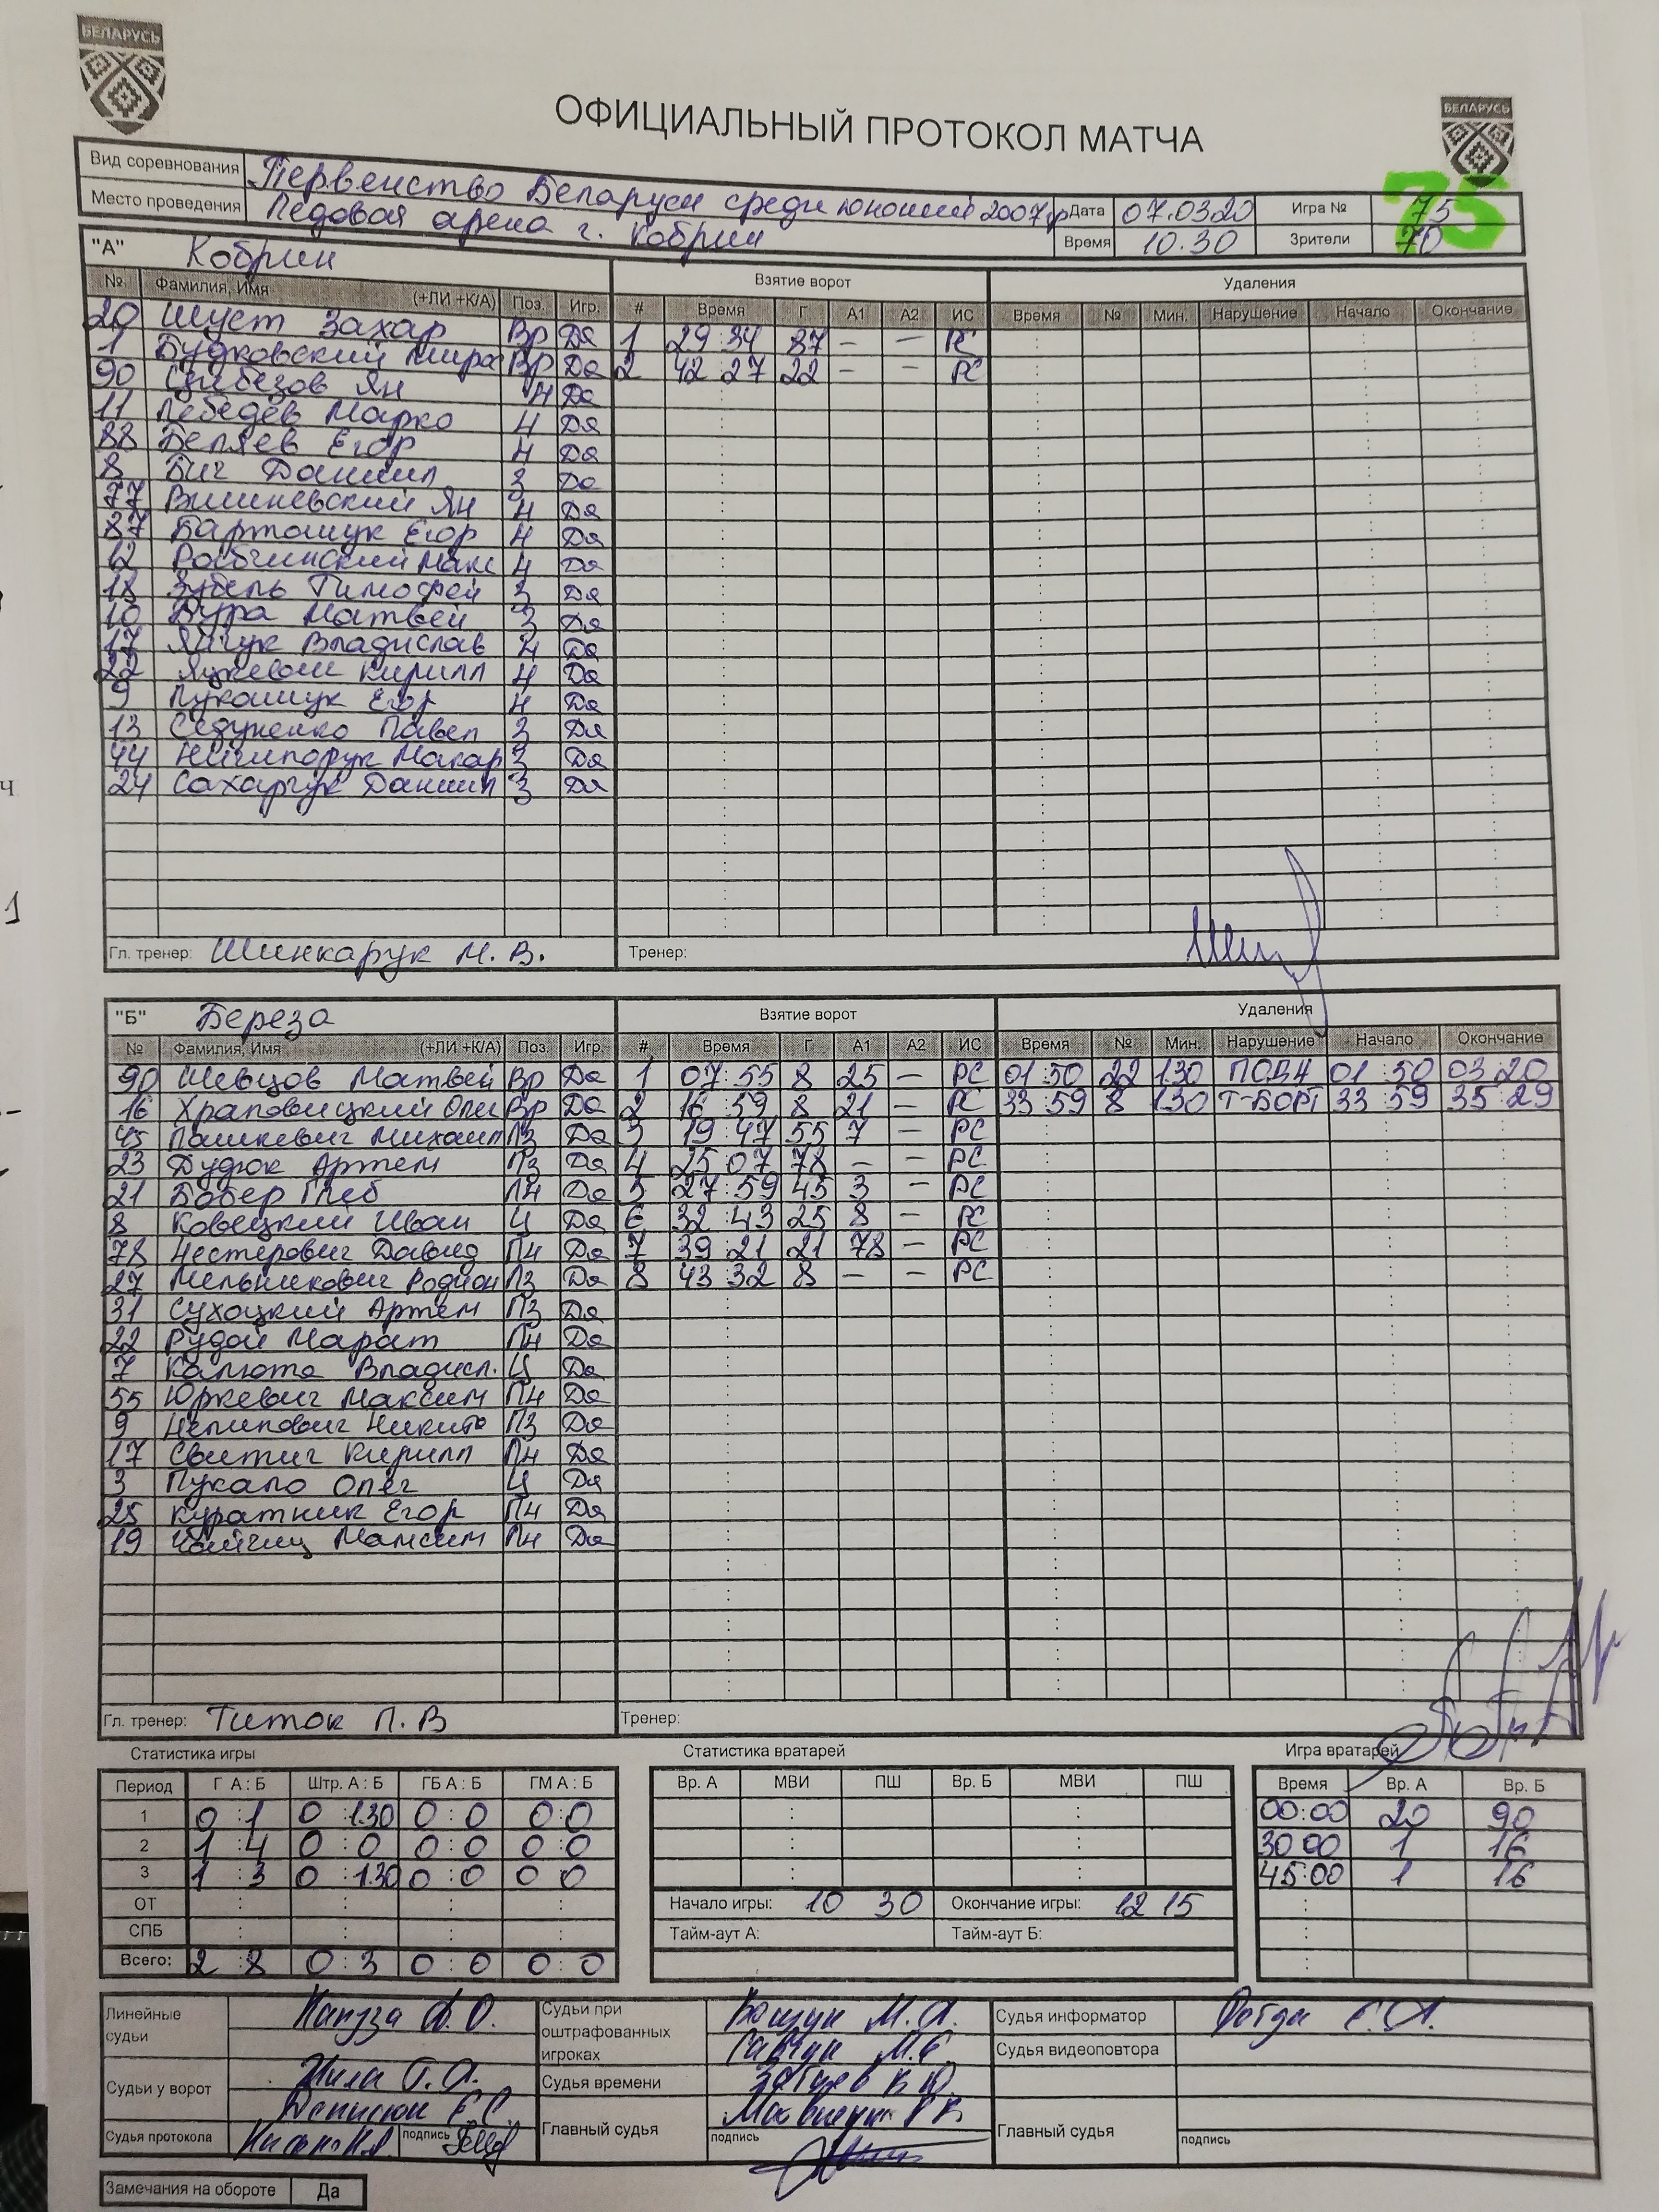 БЕЛАРУСЬ
БЕЛАРУСЬ
ОФИЦИАЛЬНЫЙ ПРОТОКОЛ МАТЧА
Вид соревнования Первенство Беларуси среди юношей 2007 гр Дата 07.03.20 Игра № 75
Место проведения Ледовая арена г. Кобрин Время 10.30 Зрители 70
"А" Кобрин Взятие ворот Удаления
№ Фамилия, Имя (+ЛИ +К/А) Поз. Игр. # Время Г А1 А2 ИС Время № Мин. Нарушение Начало Окончание
20 Шуст Захар Вр Да 1 29:34 87 — — РС
1 Будковский Мира Вр Да 2 42 27 22 — — РС
90 Ян Н Да
11 Лебедев Марко Н Да
88 Беляев Егор Н Да
8 Биг Даниил З Да
77 Вишневский Ян Н Да
87 Бартошук Егор Н Да
12 Макс Н Да
18 Зубель Тимофей З Да
10 Дура Матвей З Да
17 Владислав Да
22 Кирилл Н Да
9 Лукашук Егор Н Да
13 Павел З Да
44 Ничипорук Макар З Да
24 Сахарчук Даниил З Да
Гл. тренер: Шинкарук Н. В. Тренер:
"Б" Береза Взятие ворот Удаления
№ Фамилия, Имя (+ЛИ +К/А) Поз. Игр. # Время Г А1 А2 ИС Время № Мин. Нарушение Начало Окончание
90 Шевцов Матвей Вр Да 1 07:55 8 25 — РС 01:50 22 1.30 01:50 03:20
16 Храповицкий Олег Вр Да 2 16:59 8 21 — РС 33:59 8 1.30 Т-БОРТ 33:59 35:29
45 Пашкевич Михаил ЛЗ Да 3 19:47 55 7 — РС
23 Дудюк Артем ПЗ Да 4 25 07 78 — — РС
21 Бобер Глеб ЛН Да 5 27:59 45 3 — РС
8 Ковецкий Иван Ц Да 6 32:43 25 8 — РС
78 Нестерович Давид ПН Да 7 39:21 21 78 — РС
27 Мельникович Родион ЛЗ Да 8 43:32 8 — — РС
31 Сухоцкий Артем ПЗ Да
22 Рудой Марат ПН Да
7 Калюта Владисл. Ц Да
55 Юркевич Максим ПН Да
9 Нелипович Никита ПЗ Да
17 Свитич Кирилл ПН Да
3 Пукало Олег Ц Да
25 Куратник Егор ПН Да
19 Максим ПН Да
Гл. тренер: Титок П. В Тренер:
Статистика игры Статистика вратарей Игра вратарей
Период Г А : Б Штр. А : Б ГБ А : Б ГМ А : Б Вр. А МВИ ПШ Вр. Б МВИ ПШ Время Вр. А Вр. Б
1 0 : 1 0 : 1.30 0 : 0 0:0 00:00 20 90
2 1 : 4 0 : 0 0 : 0 0:0 30 00 1 16
3 1 : 3 0 : 1.30 0 : 0 0 0 45:00 1 16
ОТ Начало игры: 10 30 Окончание игры: 12 15
СПБ Тайм-аут А: Тайм-аут Б:
Всего: 2 :8 0 : 3 0 : 0 0 : 0
Линейные судьи Судьи при оштрафованных игроках М. А. Судья информатор
М. С. Судья видеоповтора
Судьи у ворот Жила Судья времени
Главный судья Главный судья
Судья протокола подпись подпись подпись
Замечания на обороте Да